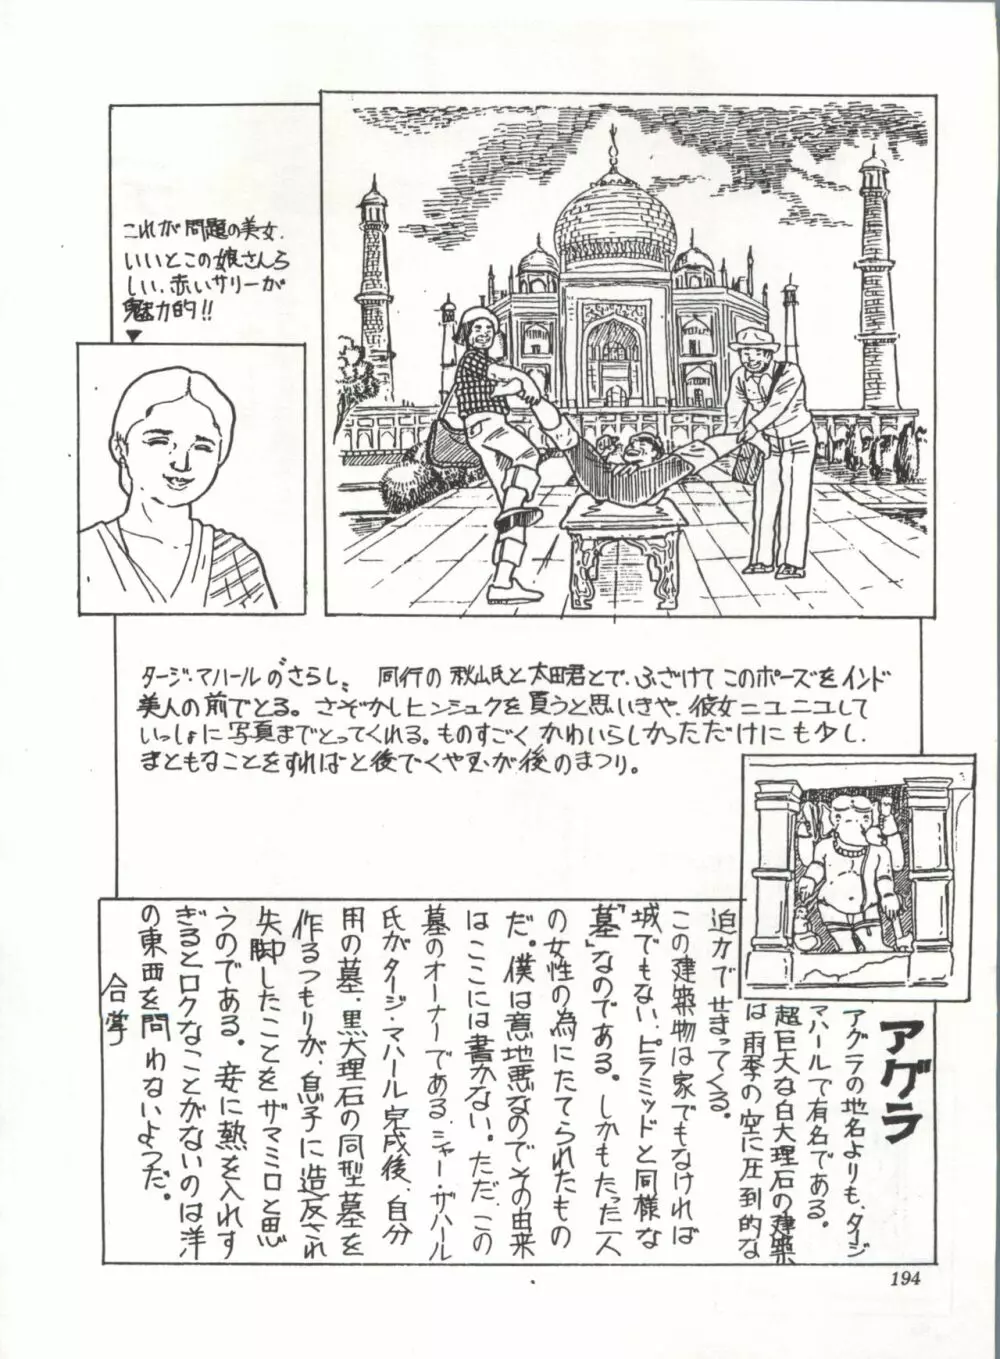 これが問題の美女.
いいとこの娘さんら
しい、赤いサリーが
魅力的!!
タージ・マハールの〝さらし〟 同行の秋山氏と太田君とで、ふざけてこのポーズをインド
美人の前でとる。さぞかしヒンシュクを買うと思いきや、彼女ニコニコして
いっしょに写真までとってくれる。ものすごくかわいらしかっただけにも少し、
まともなことをすればと後でくやむが後のまつり。
アグラ
アグラの地名よりも、タージ
マハールで有名である。
超巨大な白大理石の建築
は雨季の空に圧到的な
迫力でせまってくる。
この建築物は家でもなければ
城でもない、ピラミッドと同様な
「墓」なのである。しかもたった一人
の女性の為にたてられたもの
だ。僕は意地悪なのでその由来
はここには書かない。ただ、この
墓のオーナーである、シャー・ザハール
氏がタージ・マハール完成後、自分
用の墓、黒大理石の同型墓を
作るつもりが、息子に造反され
失脚したことをザマミロと思
うのである。妾に熱を入れす
ぎるとロクなことがないのは洋
の東西を問わないようだ。
合掌
194